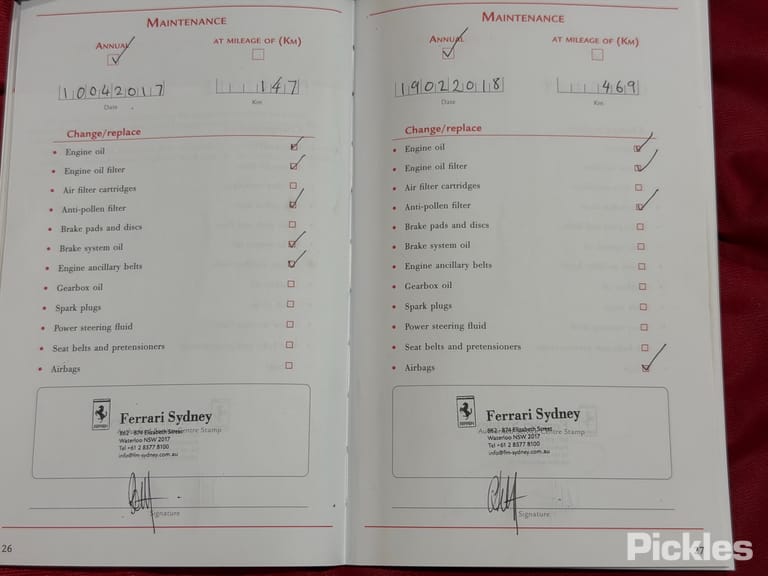 MAINTENANCE
ANNUAL AT MILEAGE OF (KM)
10042017 147
Date Km
Change/replace
• Engine oil
• Engine oil filter
• Air filter cartridges
• Anti-pollen filter
• Brake pads and discs
• Brake system oil
• Engine ancillary belts
• Gearbox oil
• Spark plugs
• Power steering fluid
• Seat belts and pretensioners
• Airbags
Ferrari Sydney
Centre Stamp
862 - 874 Elizabeth Street
Waterloo NSW 2017
Tel +61 2 8577 8100
info@fm-sydney.com.au
Signature
26
MAINTENANCE
ANNUAL AT MILEAGE OF (KM)
19022018 469
Date Km
Change/replace
• Engine oil
• Engine oil filter
• Air filter cartridges
• Anti-pollen filter
• Brake pads and discs
• Brake system oil
• Engine ancillary belts
• Gearbox oil
• Spark plugs
• Power steering fluid
• Seat belts and pretensioners
• Airbags
Ferrari Sydney
Centre Stamp
862 - 874 Elizabeth Street
Waterloo NSW 2017
Tel +61 2 8577 8100
info@fm-sydney.com.au
Signature
27
Pickles